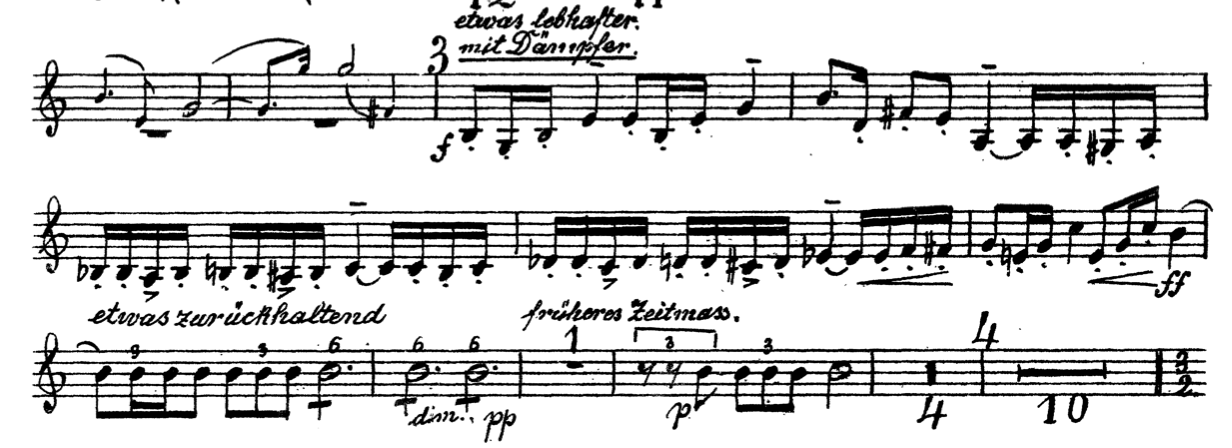 etwas lebhafter.
3 mit Dämpfer.
f
ff
etwas zurückhaltend früheres Zeitmass.
3 3 6 6 6 1 3 3 4
dim. pp p 4 10 3/2